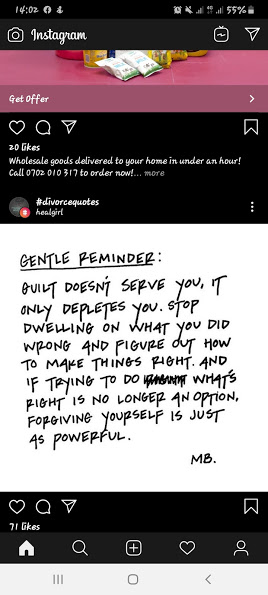 14:02
55%
Instagram
Get Offer
20 likes
Wholesale goods delivered to your home in under an hour!
Call 0702 010 317 to order now!... more
#divorcequotes
healgirl
GENTLE REMINDER:
GUILT DOESN'T SERVE YOU, IT
ONLY DEPLETES YOU. STOP
DWELLING ON WHAT YOU DID
WRONG AND FIGURE OUT HOW
TO MAKE THINGS RIGHT. AND
IF TRYING TO DO WHAT'S
RIGHT IS NO LONGER AN OPTION,
FORGIVING YOURSELF IS JUST
AS POWERFUL.
MB.
71 likes